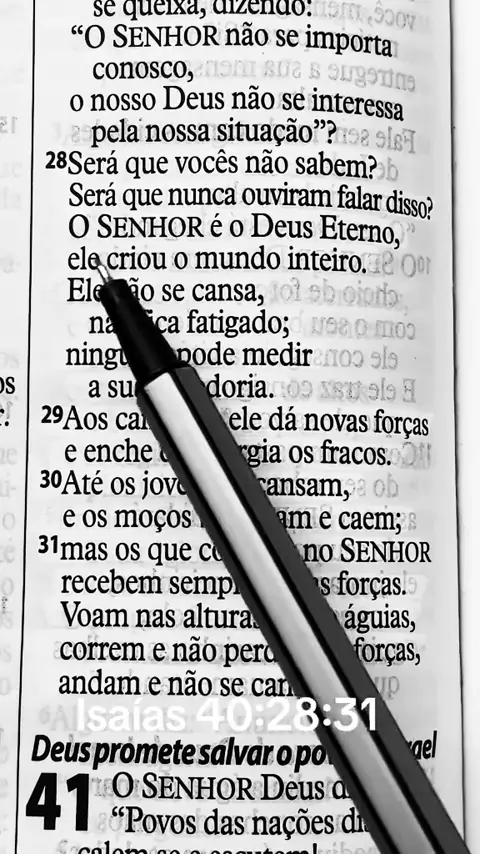 se queixa, dizendo:
“O SENHOR não se importa
conosco,
o nosso Deus não se interessa
pela nossa situação”?
28Será que vocês não sabem?
Será que nunca ouviram falar disso?
O SENHOR é o Deus Eterno,
ele criou o mundo inteiro.
Ele não se cansa,
fatigado;
pode medir
a
29Aos ele dá novas forças
e enche os fracos.
30Até os cansam,
e os moços e caem;
31mas os que no SENHOR
recebem forças.
Voam nas águias,
correm e não forças,
andam e não se
Isaías 40:28:31
Deus promete salvar o
41 O SENHOR Deus
“Povos das nações
calem-se e escutem!